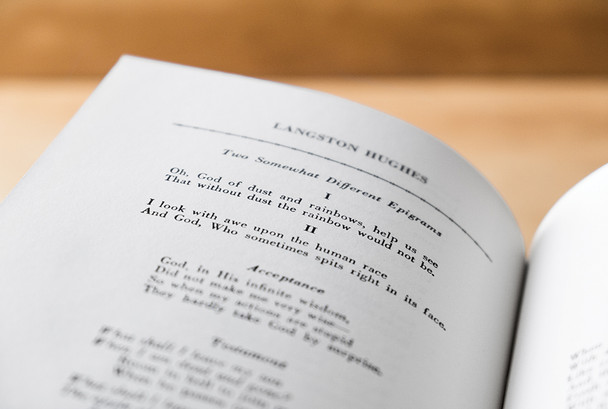 LANGSTON HUGHES
Two Somewhat Different Epigrams
I
Oh, God of dust and rainbows, help us see
That without dust the rainbow would not be.
II
I look with awe upon the human race
And God, Who sometimes spits right in its face.
Acceptance
God, in His infinite wisdom,
Did not make me very wise—
So when my actions are stupid
They hardly take God by surprise.
Testament
What shall I leave my son
When I am dead and gone?